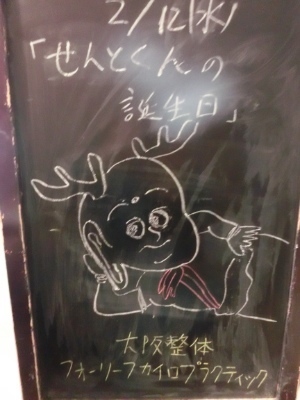 2/12(水)
「せんとくんの
誕生日」
大阪整体
フォーリーフカイロプラクティック